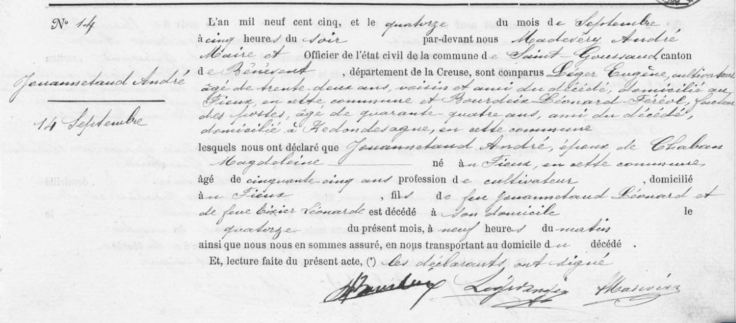 N° 14
Jouannetaud André
14 Septembre
L'an mil neuf cent cinq, et le quatorze du mois de Septembre
à cinq heures du soir par-devant nous Madeséry André
Maire et Officier de l'état civil de la commune de Saint Goussaud canton
de Bénévent, département de la Creuse, sont comparus Léger Eugène, cultivateur
âgé de trente deux ans, voisin et ami du décédé, domicilié au
Fieux, en cette commune et Bourdeix Léonard Féréol, facteur
des postes, âgé de quarante quatre ans, ami du décédé,
domicilié à Redondesagne, en cette commune
lesquels nous ont déclaré que Jouannetaud André, époux de Chaban
Magdeleine né au Fieux, en cette commune,
âgé de cinquante cinq ans profession de cultivateur, domicilié
au Fieux, fils de feu Jouannetaud Léonard et
de feue Tixier Léonarde est décédé à son domicile le
quatorze du présent mois, à neuf heures du matin
ainsi que nous nous en sommes assuré, en nous transportant au domicile du décédé.
Et, lecture faite du présent acte, (*) les déclarants, ont signé